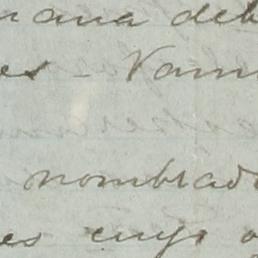 mana deb
es - Vam
nombrad
es cuyo